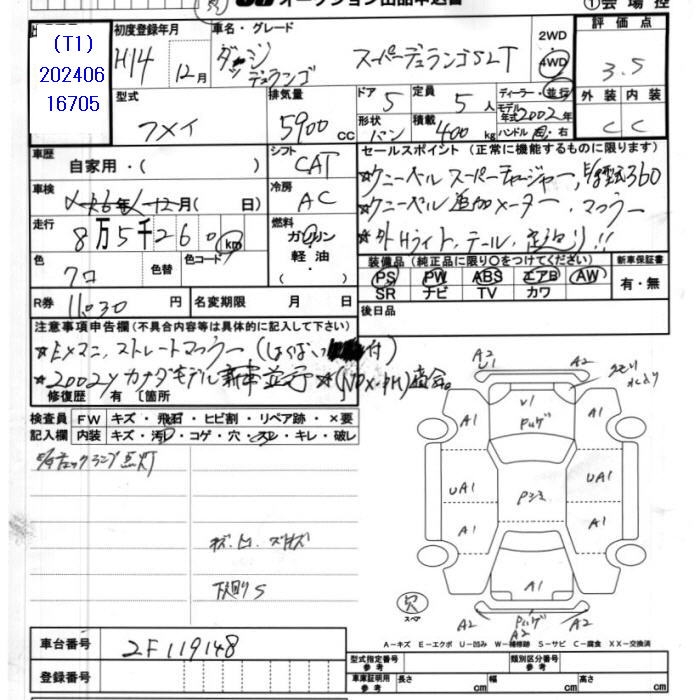 オークション出品申込書
①会場控
(T1)
202406
16705
初度登録年月
H14 12月
車名・グレード
ダッジ
デュランゴ
スーパーデュランゴSLT
2WD
4WD
評価点
3.5
型式
フメイ
排気量
5900 cc
ドア 5
定員 5人
形状 バン
積載 400 kg
ディーラー・並行
モデル年式 2002年
ハンドル 左・右
外装 内装
C C
車歴
自家用・( )
シフト
CAT
セールスポイント (正常に機能するものに限ります)
☆ケニーベル スーパーチャージャー,
360
☆ケニーベル 追加メーター.マフラー
☆外Hライト.テール.
車検
年 12月( 日)
冷房
AC
走行
8万5千260 km
燃料
ガソリン
軽油
( )
色
クロ
色替
色コード
装備品 (純正品に限り○をつけてください)
PS PW ABS エアB AW
SR ナビ TV カワ
新車保証書
有・無
R券 11030 円
名変期限 月 日
後日品
注意事項申告欄 (不具合内容等は具体的に記入して下さい)
☆EXマニ.ストレートマフラー
付)
☆2002yカナダモデル新車並行
適合。
修復歴 有 〔箇所
検査員
記入欄
FW キズ・飛石・ヒビ割・リペア跡・×要
内装 キズ・汚レ・コゲ・穴・スレ・キレ・破レ
チェックランプ点灯
キズ.凹.
下廻りS
A2
U1
A2
A1
V1
A1
UA1
UA1
A1
A1
A1
穴
スペア
A2
A2
A2
A－キズ E－エクボ U－凹み W－補修跡 S－サビ C－腐食 XX－交換済
車台番号
2F119148
登録番号
型式指定番号
参考
類別区分番号
参考
車庫証明用
参考
長さ cm
幅 cm
高さ cm